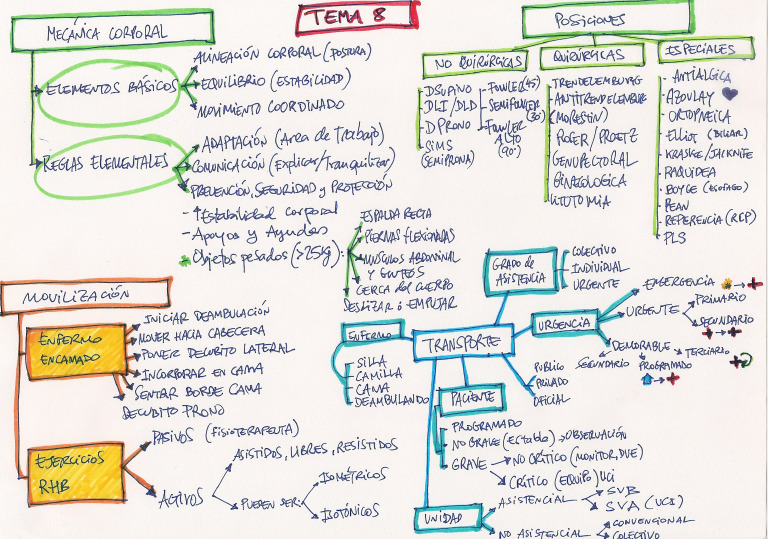 TEMA 8
MECÁNICA CORPORAL
ELEMENTOS BÁSICOS
ALINEACIÓN CORPORAL (POSTURA)
EQUILIBRIO (ESTABILIDAD)
MOVIMIENTO COORDINADO
REGLAS ELEMENTALES
ADAPTACIÓN (Area de Trabajo)
COMUNICACIÓN (Explicar/Tranquilizar)
PREVENCIÓN, SEGURIDAD y PROTECCIÓN
- ↑Estabilidad corporal
- Apoyos y Ayudas
- Objetos pesados (>25Kg):
ESPALDA RECTA
PIERNAS FLEXIONADAS
MUSCULOS ABDOMINAL
Y GLUTEOS
CERCA del CUERPO
DESLIZAR ó EMPUJAR
POSICIONES
NO QUIRÚRGICAS
DSUPINO
DLI/DLD
DPRONO
SIMS
(SEMIPRONA)
FOWLER (45º)
SEMIFOWLER
(30º)
FOWLER
ALTO
(90º)
QUIRÚRGICAS
TRENDELEMBURG
ANTITRENDELEMBUR
(MORESTIN)
ROSER/PROETZ
GENUPECTORAL
GINECOLOGICA
LITOTOMIA
ESPECIALES
ANTIALGICA
AZOULAY
ORTOPNEICA
ELLIOT (BILIAR)
KRASKE/JACKNIFE
RAQUIDEA
BOYCE (ESOFAGO)
PEAN
REFERENCIA (RCP)
PLS
MOVILIZACIÓN
ENFERMO
ENCAMADO
INICIAR DEAMBULACIÓN
MOVER HACIA CABECERA
PONER DECUBITO LATERAL
INCORPORAR EN CAMA
SENTAR BORDE CAMA
DECUBITO PRONO
EJERCICIOS
RHB
PASIVOS (FISIOTERAPEUTA)
ACTIVOS
ASISTIDOS, LIBRES, RESISTIDOS
PUEDEN SER:
ISOMÉTRICOS
ISOTÓNICOS
TRANSPORTE
GRADO de
ASISTENCIA
COLECTIVO
INDIVIDUAL
URGENTE
URGENCIA
EMERGENCIA
URGENTE
PRIMARIO
SECUNDARIO
DEMORABLE
SECUNDARIO
PROGRAMADO
TERCIARIO
PUBLICO
PRIVADO
OFICIAL
ENFERMO
SILLA
CAMILLA
CAMA
DEAMBULANDO
PACIENTE
PROGRAMADO
NO GRAVE (Estable) → OBSERVACIÓN
GRAVE
NO CRÍTICO (MONITOR, DUE)
CRÍTICO (EQUIPO) UCI
UNIDAD
ASISTENCIAL
SVB
SVA (UCI)
NO ASISTENCIAL
CONVENCIONAL
COLECTIVO